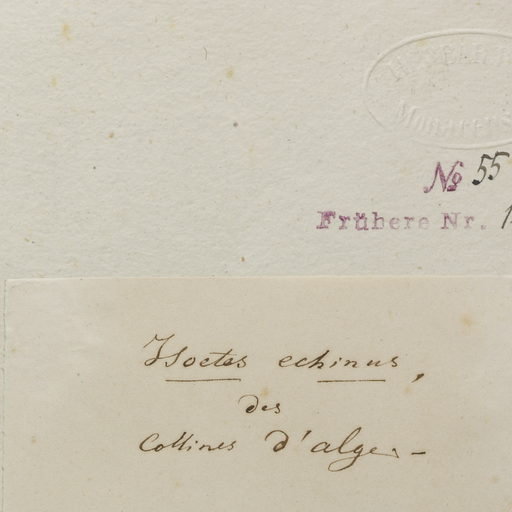 № 55
Frühere Nr. 1
Isoetes echinus,
des
Collines d'alger –